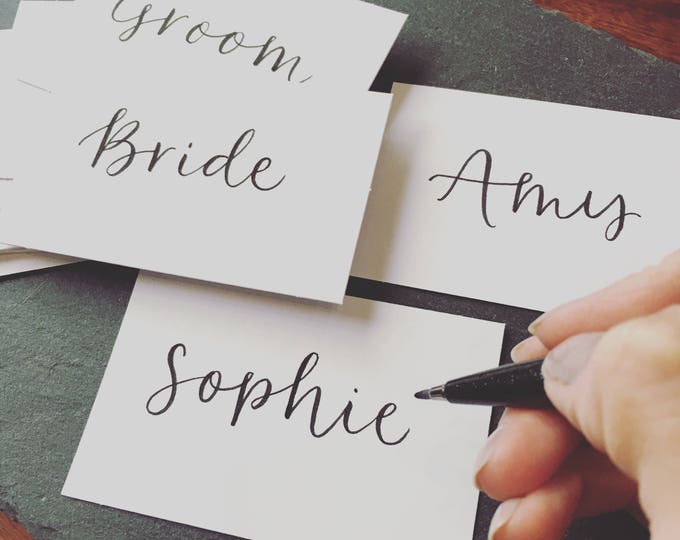 Groom
Bride
Amy
Sophie